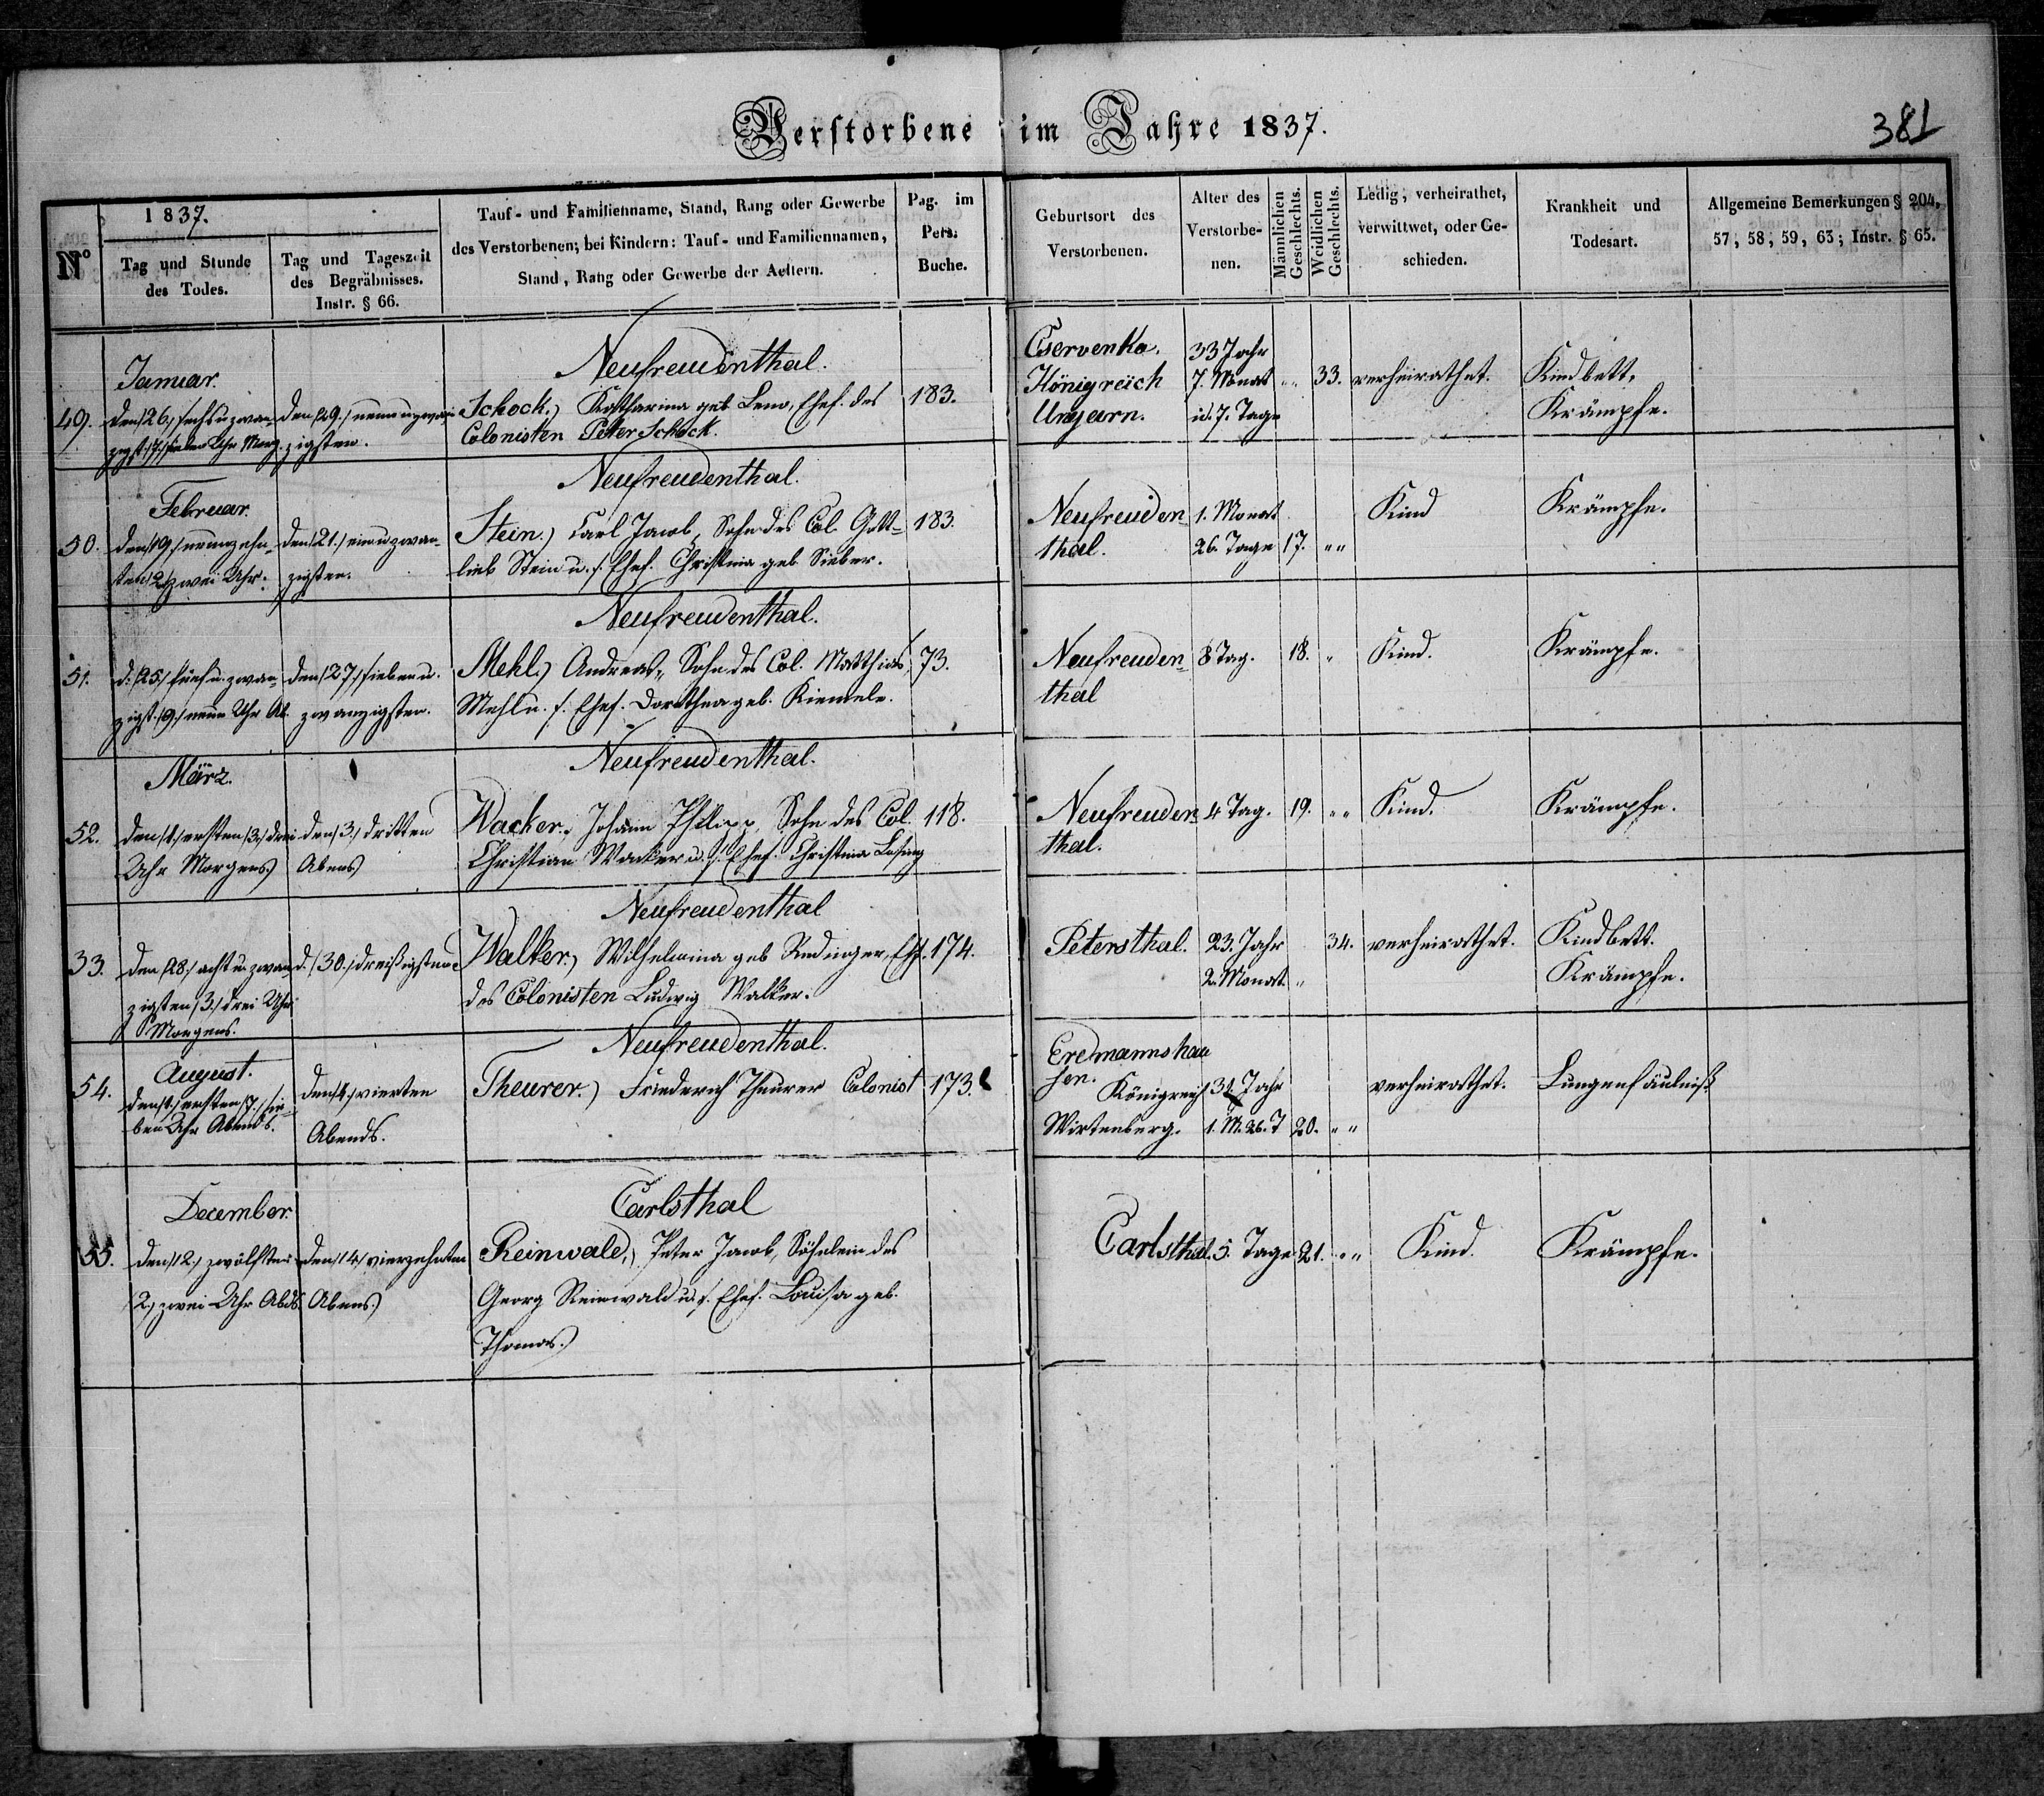 Verstorbene im Jahre 1837.
381
No
1837.
Tag und Stunde
des Todes.
Tag und Tageszeit
des Begräbnisses.
Instr. § 66.
Tauf- und Familienname, Stand, Rang oder Gewerbe
des Verstorbenen; bei Kindern: Tauf- und Familiennamen,
Stand, Rang oder Gewerbe der Aeltern.
Pag. im
Pers.
Buche.
Geburtsort des
Verstorbenen.
Alter des
Verstorbe-
nen.
Männlichen
Geschlechts.
Weidlichen
Geschlechts.
Ledig, verheirathet,
verwittwet, oder Ge-
schieden.
Krankheit und
Todesart.
Allgemeine Bemerkungen § 204,
57, 58, 59, 63; Instr. § 65.
49.
Januar.
den /26./ sechs u. zwan-
zigst. /7./ sieben Uhr Morg.
den /29./ neun u. zwan-
zigsten.
Neufreudenthal.
Schock.) Katharina geb. , Ehef. des
Colonisten Peter Schock.
183.
Cservenka.
Königreich
Ungarn.
33 Jahr
7. Monat
u. 7. Tage
" 33.
verheirathet.
Kindbett,
Krämpfe.
50.
Februar.
den /19/ neunzehn-
ten /2/ zwei Uhr.
den /21./ ein u. zwan-
zigsten.
Neufreudenthal.
Stein.) Carl Jacob, Sohn des Col. Gott-
lieb Stein u. s. Ehef. Christina geb. Sieber.
183.
Neufreuden-
thal.
1. Monat
26. Tage
17. "
Kind
Krämpfe.
51.
d. /25./ fünf u. zwan-
zigst. /9./ neun Uhr Ab.
den /27./ sieben u.
zwanzigsten.
Neufreudenthal.
Mehl.) Andreas, Sohn des Col. Matthias
Mehl u. s. Ehef. Dorothea geb. Kiemele.
73.
Neufreuden-
thal
8 Tag.
18. "
Kind.
Krämpfe.
52.
März.
den /1./ ersten /3./ drei
Uhr Morgens.)
den /3./ dritten
Abens)
Neufreudenthal.
Wacker., Johann Philipp, Sohn des Col.
Christian Wacker u. s. Ehef. Christina
118.
Neufreuden-
thal.
4 Tag.
19. "
Kind.
Krämpfe.
33.
den /28./ acht u. zwan-
zigsten /3./ drei Uhr
Morgens.
d. /30./ dreißigsten
Neufreudenthal
Walker.) Wilhelmina geb. Redinger, Ehf.
des Colonisten Ludwig Walker.
174.
Petersthal.
23. Jahr
2. Monat. "
34.
verheirathet.
Kindbett.
Krämpfe.
54.
August.
den /1./ ersten /7./ sie-
ben Uhr Abends.
den /4./ vierten
Abends.
Neufreudenthal.
Theurer.) Friederich Theurer Colonist
173.
Erdmannshau
sen.
Königreich
Wirtenberg.
Jahr
1. M. 26. T
20. "
verheirathet.
Lungenfäulniß
55.
December.
den /12./ zwölften
/2./ zwei Uhr Abds.
den /14./ vierzehnten
Abens.)
Carlsthal
Reinwald.) Peter Jacob, Söhnlein des
Georg Reinwald u. s. Ehef. Louisa geb.
Thomas.)
Carlsthal.
5. Tage
21. "
Kind.
Krämpfe.